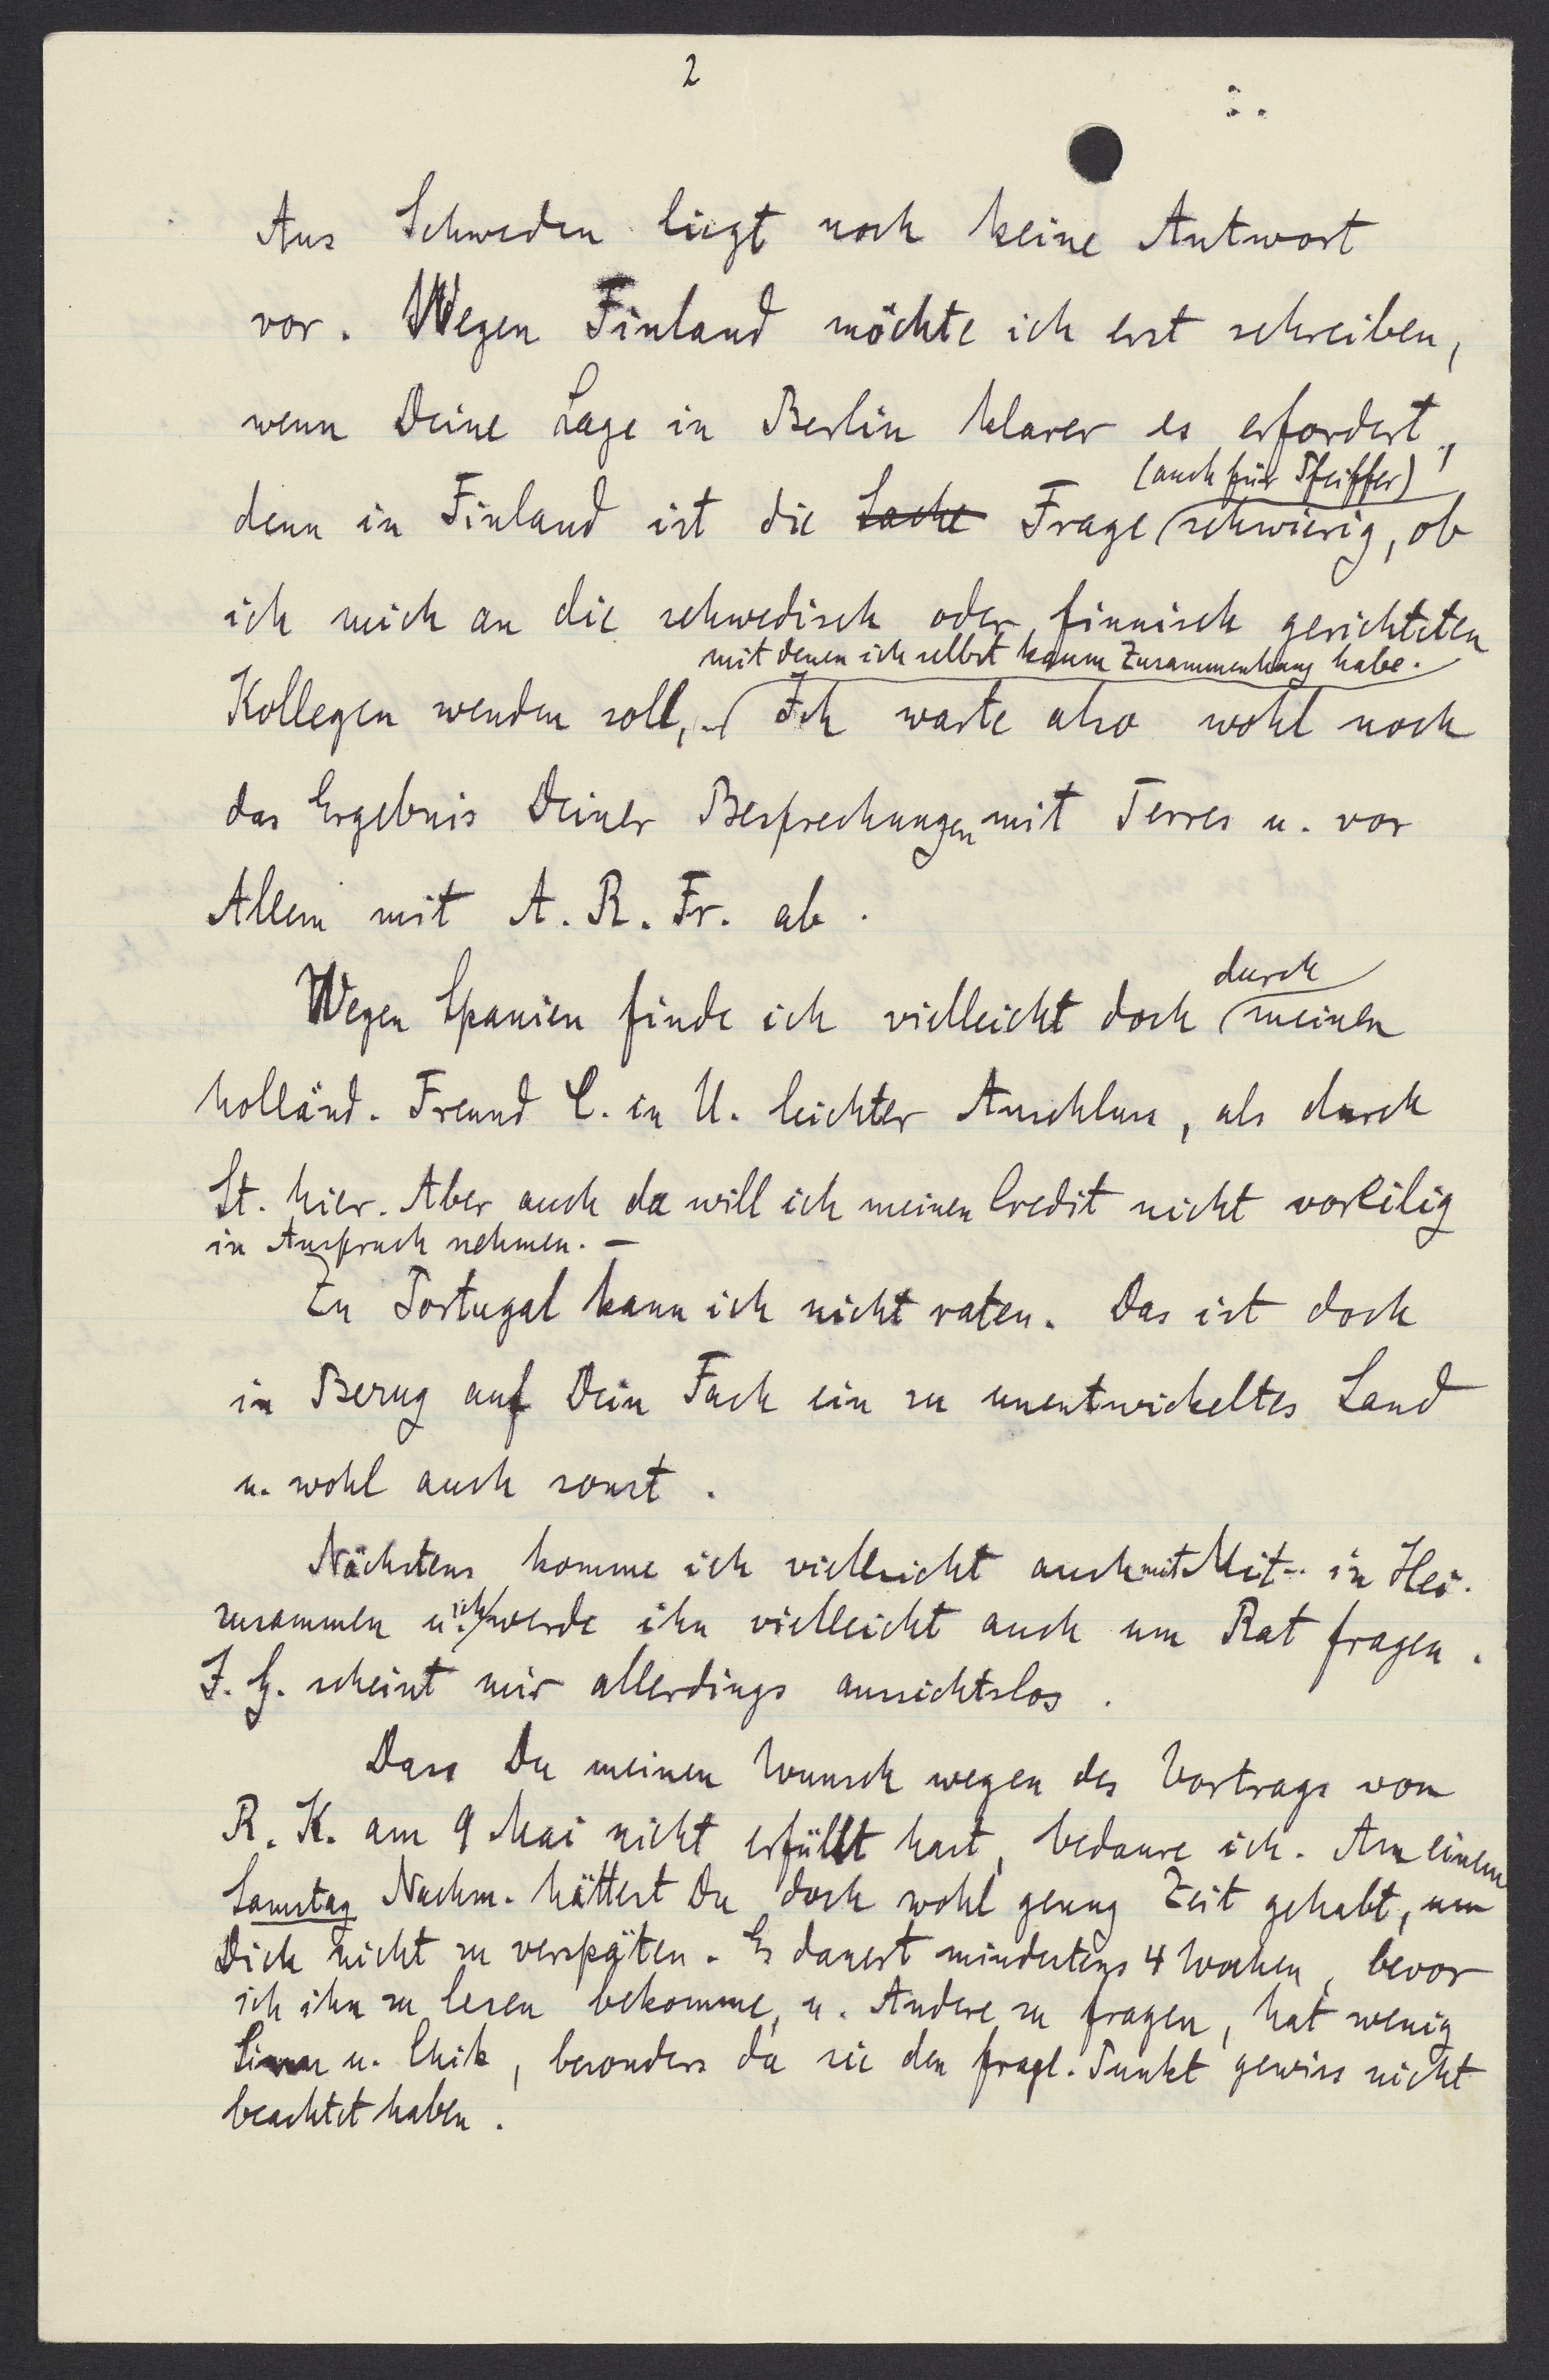 2
Aus Schweden liegt noch keine Antwort
vor. Wegen Finland möchte ich erst schreiben,
wenn Deine Lage in Berlin klarer es erfordert,
(auch für Pfeiffer)
denn in Finland ist die Sache Frage schwierig, ob
ich mich an die schwedisch oder finnisch gerichteten
mit denen ich selbst kaum Zusammenhang habe.
Kollegen wenden soll, Ich warte also wohl noch
das Ergebnis Deiner Besprechungen mit Terres u. vor
Allem mit A. R. Fr. ab.
durch
Wegen Spanien finde ich vielleicht doch meinen
holländ. Freund C. in U. leichter Anschluss, als durch
St. hier. Aber auch da will ich meinen Credit nicht voreilig
in Anspruch nehmen. —
Zu Portugal kann ich nicht raten. Das ist doch
in Bezug auf Dein Fach ein zu unentwickeltes Land
u. wohl auch sonst.
Nächstens komme ich vielleicht auch mit Mit-. in Hei.
zusammen u. ich werde ihn vielleicht auch um Rat fragen.
J. G. scheint mir allerdings aussichtslos.
Dass Du meinen Wunsch wegen des Vortrags von
R. K. am 9 Mai nicht erfüllt hast, bedaure ich. An einem
Samstag Nachm. hättest Du doch wohl genug Zeit gehabt, um
Dich nicht zu verspäten. Es dauert mindestens 4 Wochen, bevor
ich ihn zu lesen bekomme, u. Andere zu fragen, hat wenig
Sinn u. Chik, besonders da sie den fragl. Punkt gewiss nicht
beachtet haben.